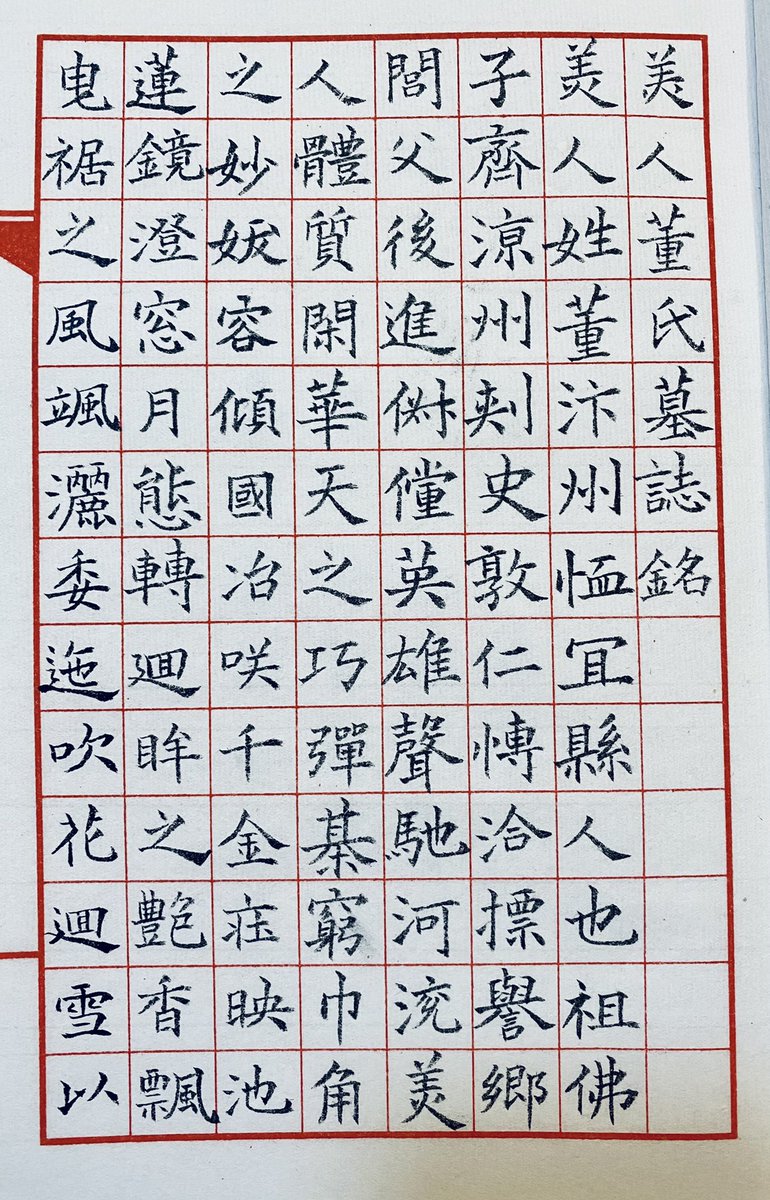 美人董氏墓誌銘
美人姓董汴州恤冝縣人也祖佛
子齊涼州刺史敦仁愽洽摽譽鄉
閭父後進俶儻英雄聲馳河沇美
人體質閑華天之巧彈棊窮巾角
之妙妭容傾國冶咲千金㽵映池
蓮鏡澄窓月態轉廻眸之艶香飄
曳裾之風颯灑委迤吹花廻雪以